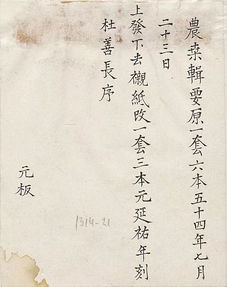 農桒輯要原一套六本五十四年七月
二十三日
上發下去襯紙改一套三本元延祐年刻
杜善長序
元板
1314-21